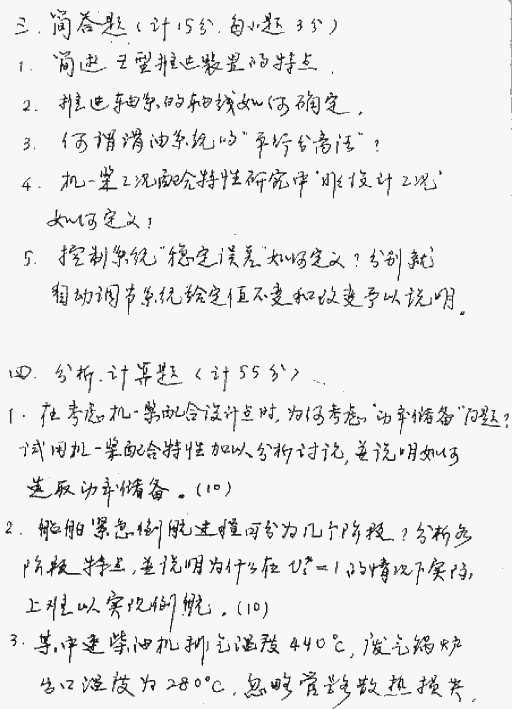 三. 简答题（计15分, 每小题3分）
1. 简述Z型推进装置的特点.
2. 推进轴系的轴线如何确定.
3. 何谓滑油系统的"平行分离法"?
4. 机-桨工况配合特性研究中'非设计工况'
如何定义?
5. 控制系统"稳定误差"如何定义? 分别就
自动调节系统给定值不变和改变予以说明。
四. 分析.计算题（计55分）
1. 在考虑机-桨配合设计点时, 为何考虑"功率储备"问题?
试用机-桨配合特性加以分析讨论, 并说明如何
选取功率储备。(10)
2. 船舶紧急倒航过程可分为几个阶段? 分析各
阶段特点, 并说明为什么在 =1的情况下实际
上难以实现倒航。(10)
3. 某中速柴油机排气温度440℃, 废气锅炉
出口温度为280℃, 忽略管路散热损失,